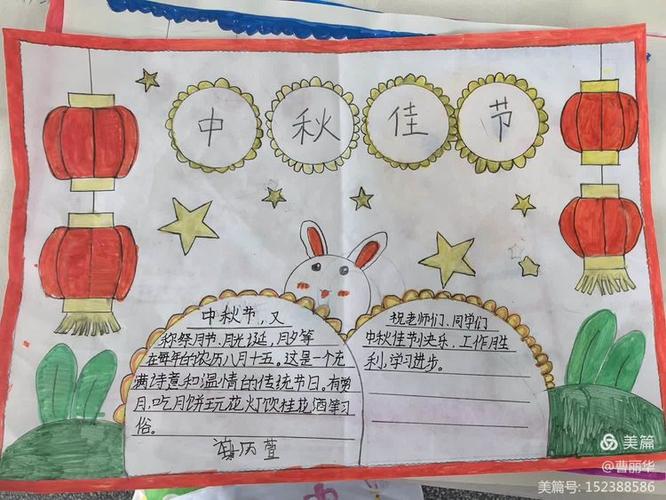 中秋佳节
中秋节，又
称祭月节、月光诞、月夕等
在每年的农历八月十五。这是一个充
满诗意和温情的传统节日。有赏
月、吃月饼玩花灯饮桂花酒等习
俗。
祝老师们、同学们
中秋佳节快乐、工作胜
利，学习进步。
美篇
@曹丽华
美篇号: 152388586